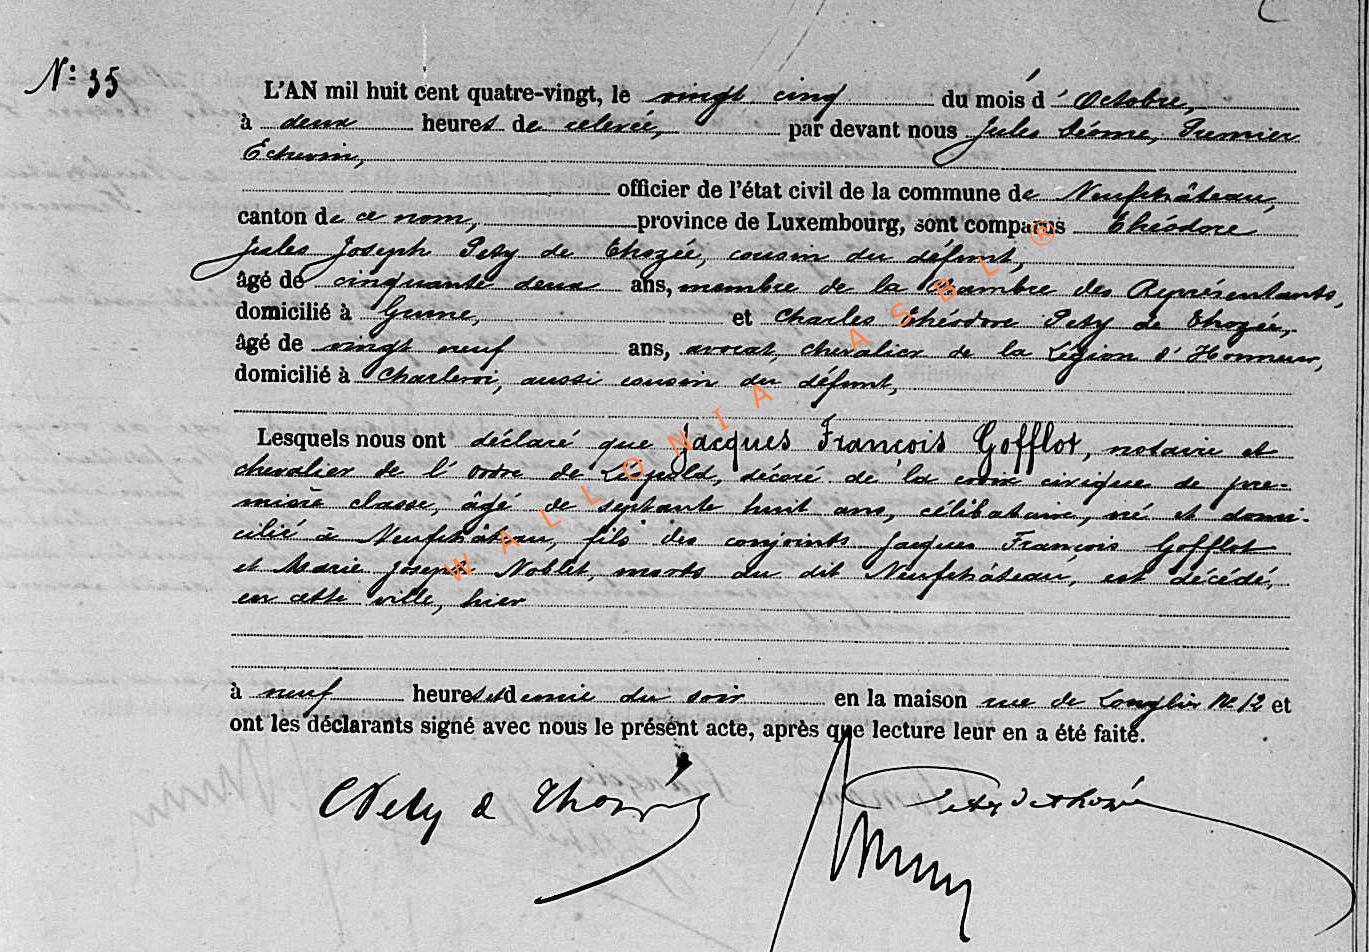 N° 35
L'AN mil huit cent quatre-vingt, le vingt cinq du mois d'Octobre,
à deux heures de relevée, par devant nous Jules Déome, Premier
Echevin,
officier de l'état civil de la commune de Neufchâteau,
canton de ce nom, province de Luxembourg, sont comparus Théodore
Jules Joseph Pety de Thozée, cousin du défunt,
âgé de cinquante deux ans, membre de la Chambre des Représentants,
domicilié à Grune, et Charles Théodore Pety de Thozée,
âgé de vingt neuf ans, avocat, chevalier de la Légion d'Honneur,
domicilié à Charleroi, aussi cousin du défunt,
Lesquels nous ont déclaré que Jacques François Gofflot, notaire et
chevalier de l'ordre de Léopold, décoré de la croix civique de pre-
mière classe, âgé de septante huit ans, célibataire, né et domi-
cilié à Neufchâteau, fils des conjoints Jacques François Gofflot
et Marie Joseph Noblet, morts au dit Neufchâteau, est décédé,
en cette ville, hier
à neuf heures et demie du soir en la maison rue de Longlier N° 12 et
ont les déclarants signé avec nous le présent acte, après que lecture leur en a été faite.
C Pety de Thozée
Pety de Thozée
WALLONIA ASBL ®